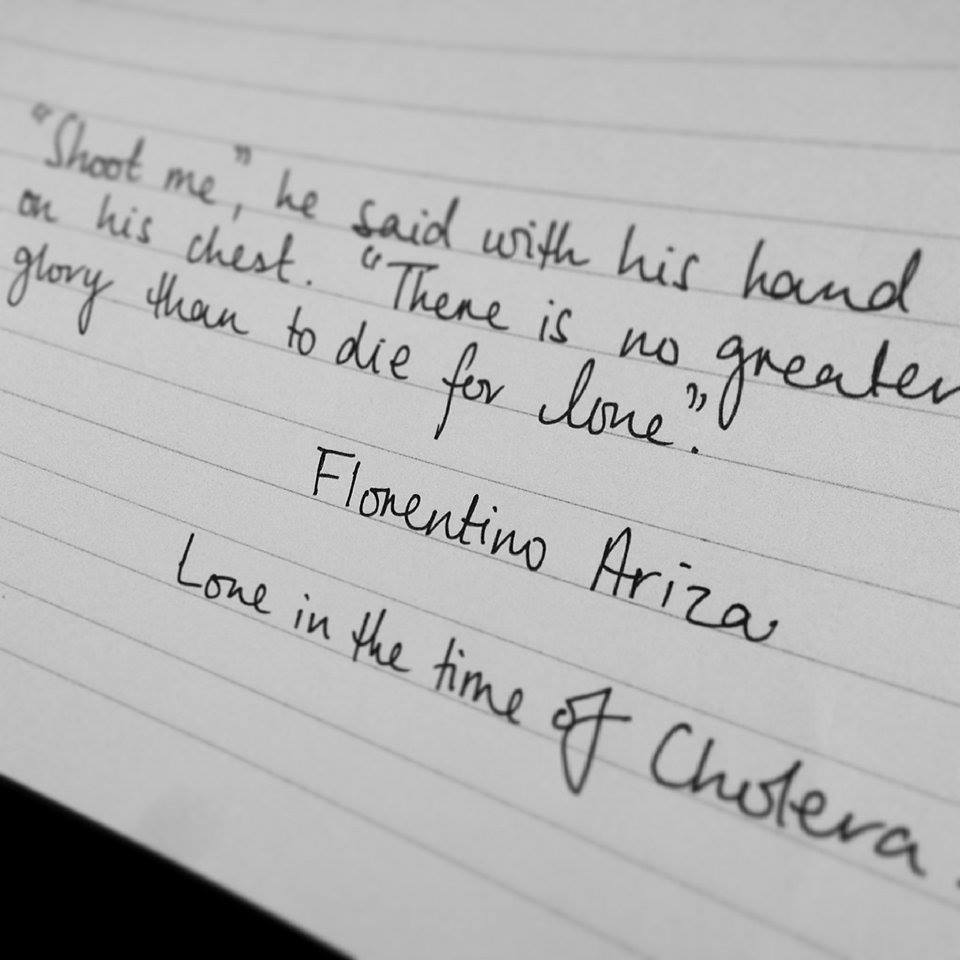 "Shoot me", he said with his hand
on his chest. "There is no greater
glory than to die for love".
Florentino Ariza
Love in the time of Cholera.